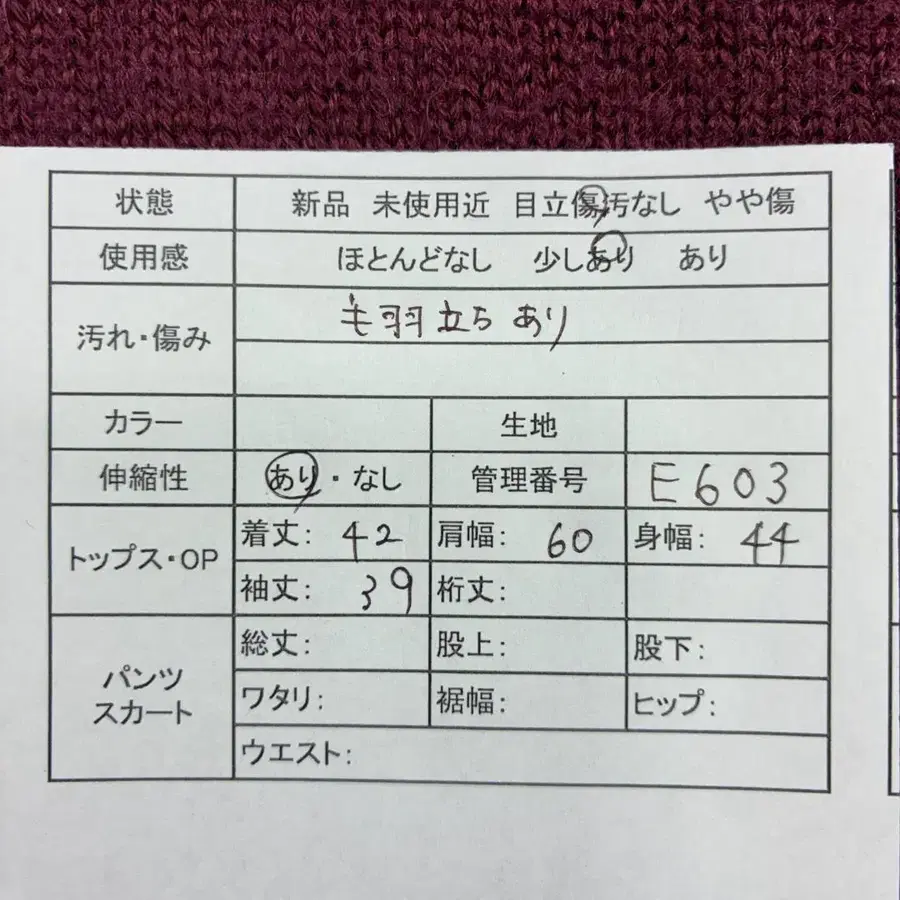 状態 新品 未使用近 目立傷汚なし やや傷
使用感 ほとんどなし 少しあり あり
汚れ・傷み 毛羽立ち あり
カラー 生地
伸縮性 あり・なし 管理番号 E603
トップス・OP 着丈: 42 肩幅: 60 身幅: 44
袖丈: 39 裄丈:
パンツ スカート 総丈: 股上: 股下:
ワタリ: 裾幅: ヒップ:
ウエスト: